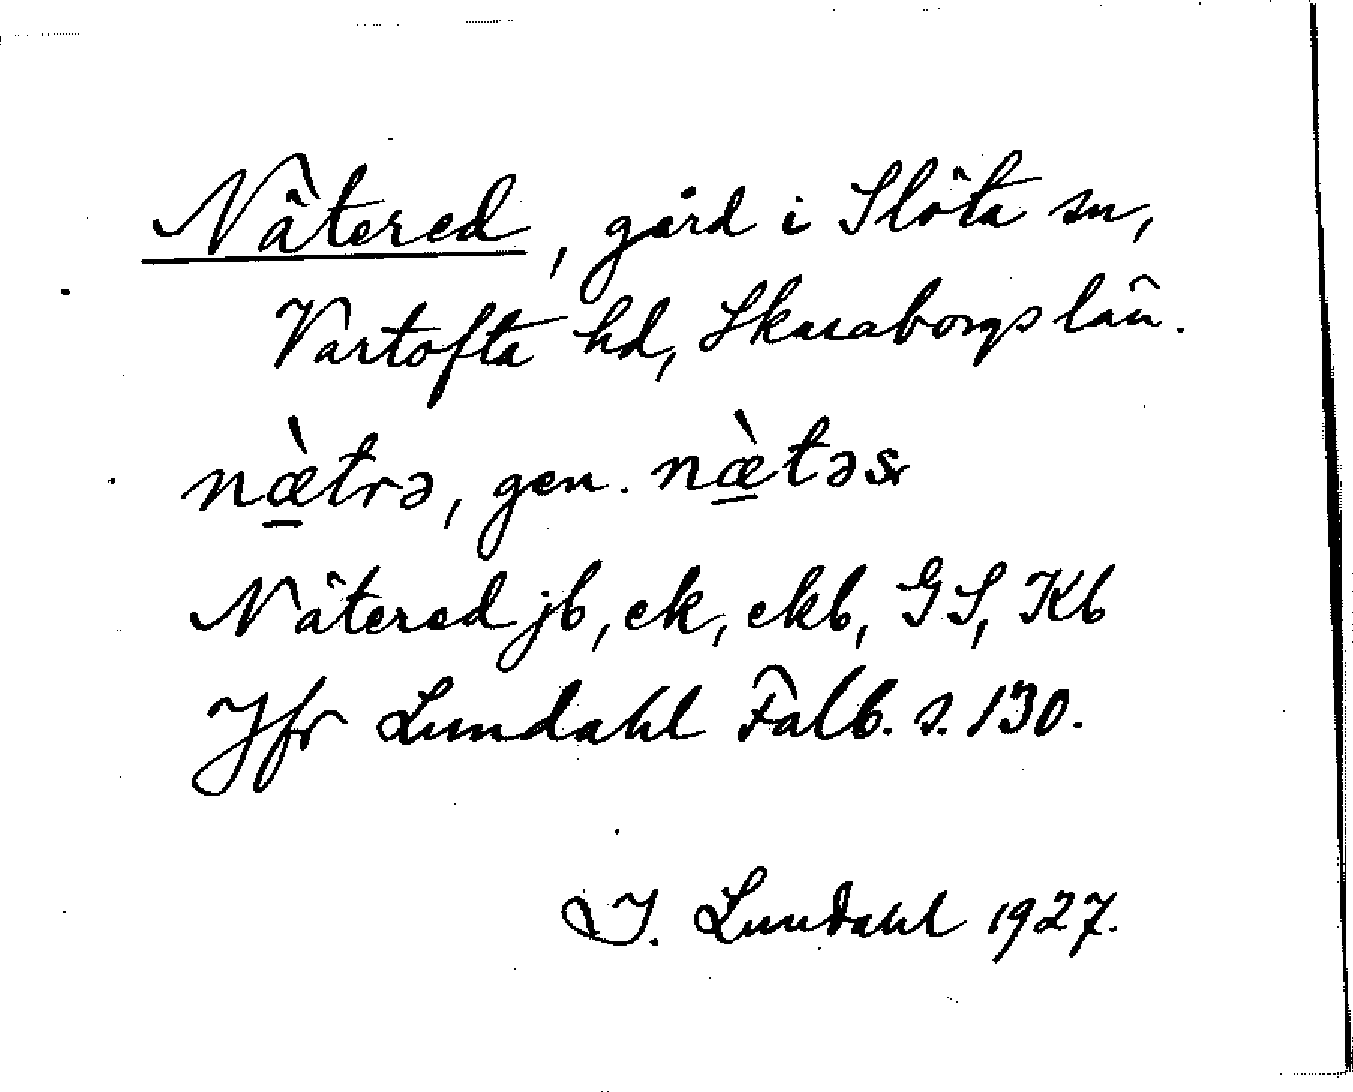 Nätered, gård i Slöta sn,
Vartofta hd, Skaraborgs län.
næ̀trə, gen. næ̀təs
Nätered jb, ek, ekb, GS, Kb
Jfr Lundahl Falb. s. 130.
I. Lundahl 1927.